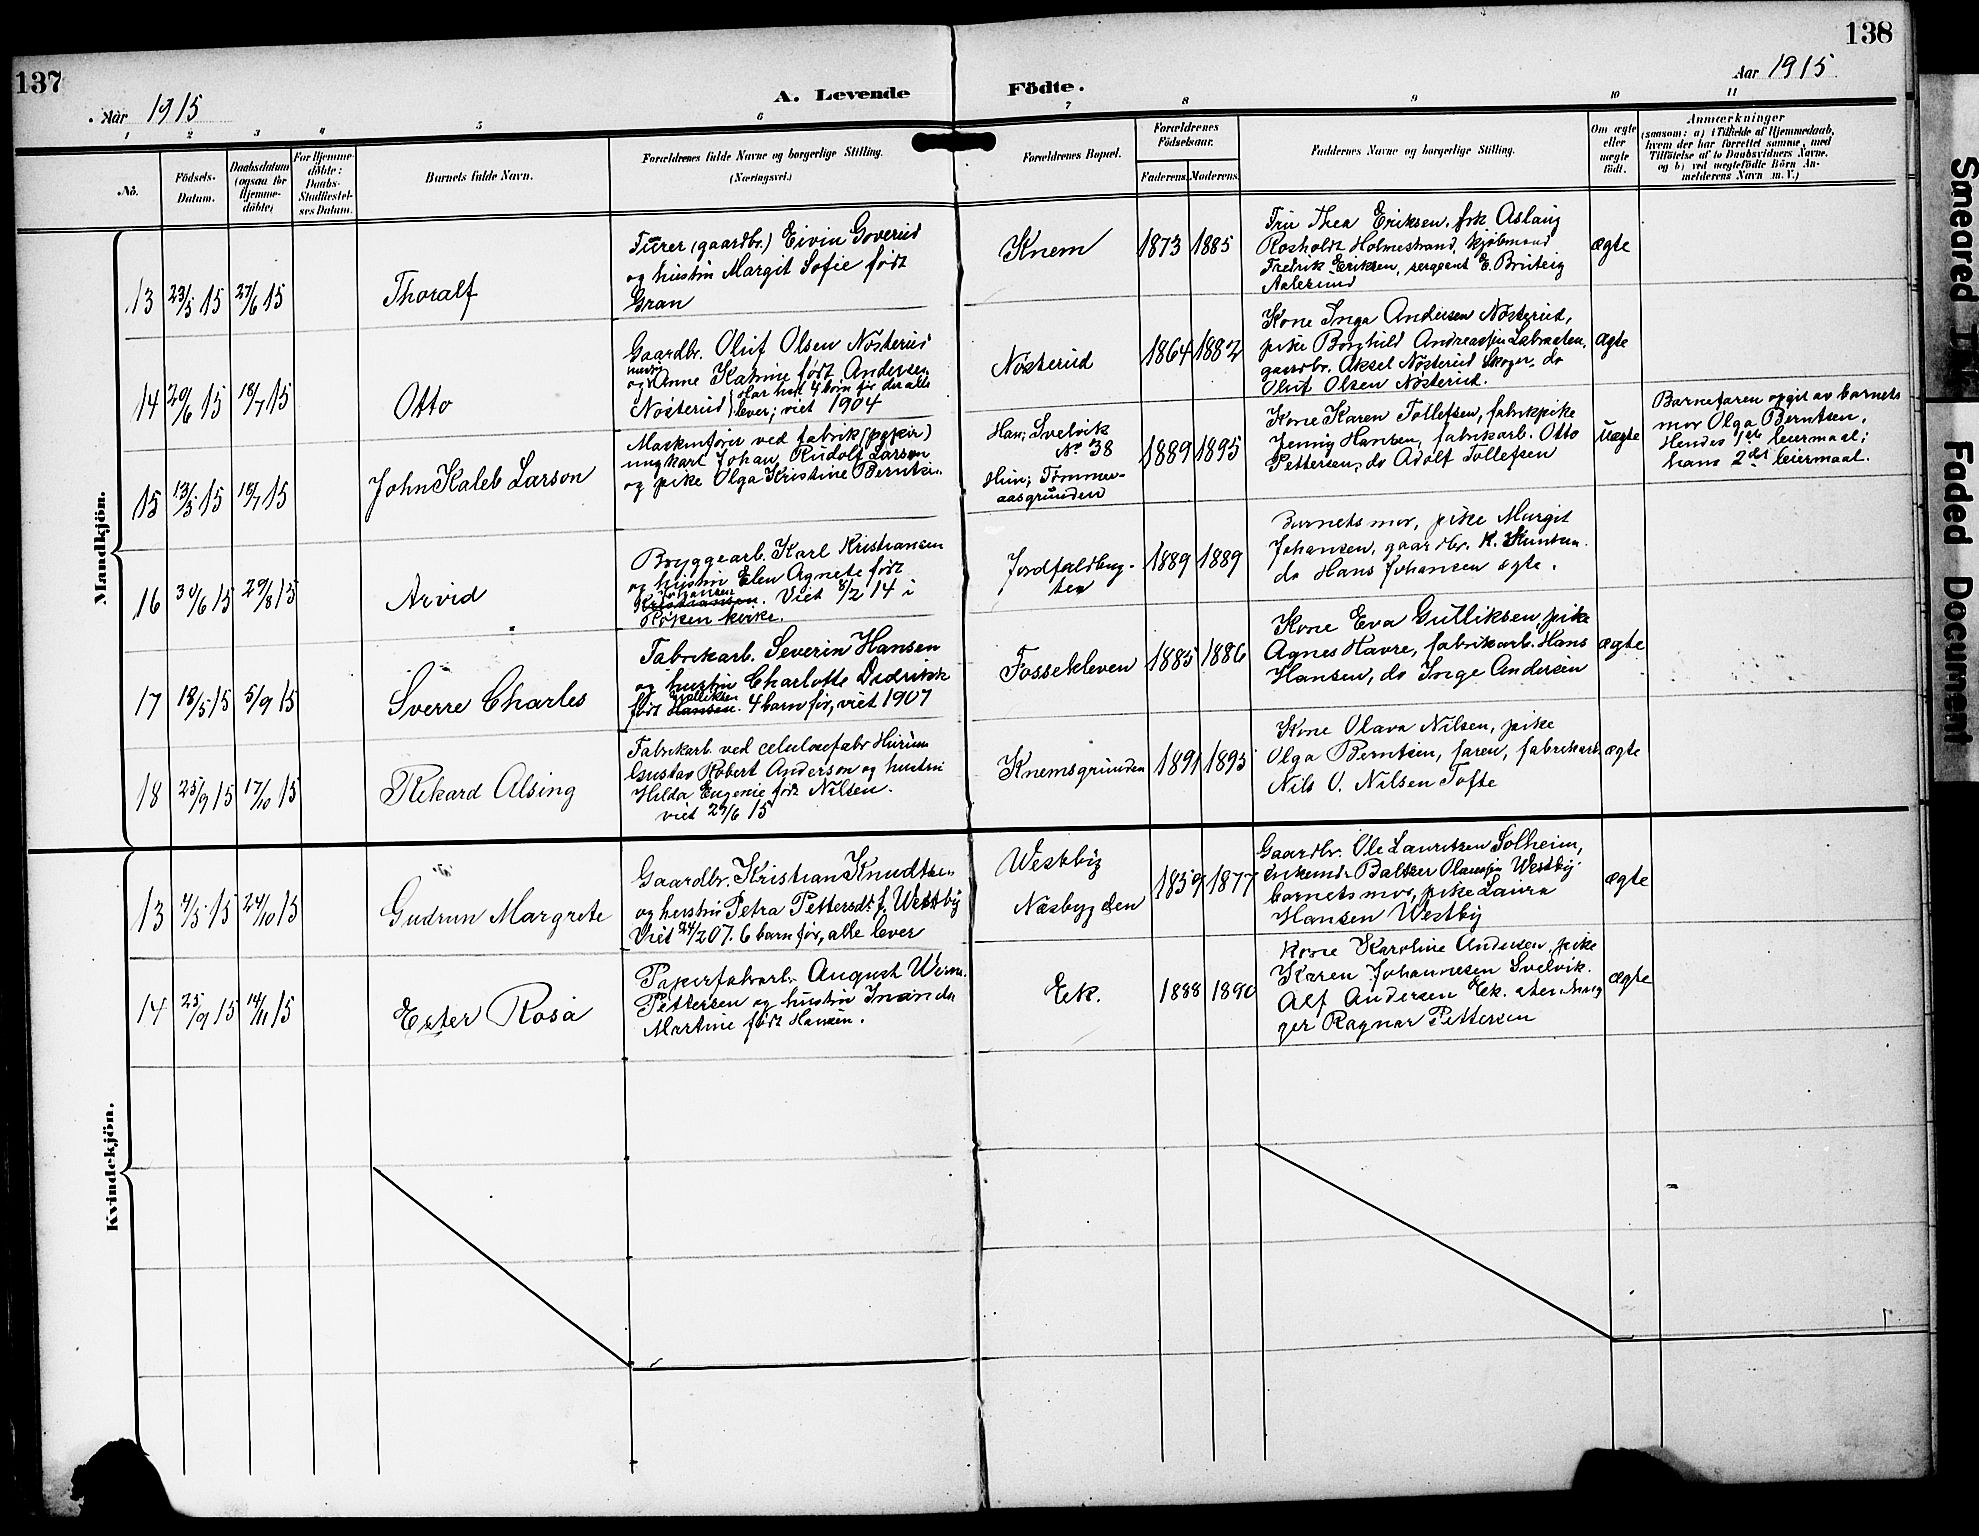 137
138
Aar 1915
A. Levende
Födte.
Aar 1915
1 2 3 4 5 6 7 8 9 10 11
No.
Födsels-
Datum.
Daabsdatum
(ogsaa for
Hjemme-
döbte)
For Hjemme-
döbte:
Daabs-
Stadfæstel-
ses Datum.
Barnets fulde Navn.
Forældrenes fulde Navne og borgerlige Stilling.
(Næringsvei.)
Forældrenes Bopæl.
Forældrenes
Födselsaar.
Faderens. Moderens.
Faddernes Navne og borgerlige Stilling.
Om ægte
eller
uægte
födt.
Anmærkninger
(saasom: a) i Tilfælde af Hjemmedaab,
hvem der har forrettet samme, med
Tilföielse af to Daabsvidners Navne,
og b) ved uægtefödte Börn An-
melderens Navn m. V.)
Mandkjön.
13 23/5 15 27/6 15 Thoralf
Furer (gaardbr.) Eivin Goverud
og hustru Margit Sofie født
Gran
Knem
1873 1885
Fru Thea Eriksen, frk Aslaug
Rosholdt Holmestrand, kjøbmand
Fredrik Eriksen, sergeant E. Bruteig
Aalesund
ægte
14 20/6 15 18/7 15 Otto
Gaardbr. Oluf Olsen Nösterud
og hustru Anne Katrine født Andersen
Nösterud har havt 4 børn før der alle
lever; viet 1904
Nösterud
1864 1882
Kone Inga Andersen Nösterud,
pike Borghild Andreassen
gaardbr. Aksel Nösterud Skoger, do
Oluf Olsen Nösterud.
ægte
15 13/5 15 18/7 15 John Kaleb Larson
Maskinfører ved fabrik (papir)
ungkarl Johan Rudolf Larson
og pike Olga Kristine Berntsen
Han; Svelvik
No 38
Hun; Tømmer-
aasgrunden
1889 1895
Kone Karen Tollefsen, fabrikpike
Jenny Hansen, fabrikarb. Otto
Pettersen, do Adolf Tollefsen
uægte
Barnefaren opgit av barnets
mor Olga Berntsen.
Hendes 1ste leiermaal;
hans 2det leiermaal.
16 30/6 15 29/8 15 Arvid
Bryggearb. Karl Kristiansen
og hustru Elen Agnete født
Johansen
Kristiansen. Viet 8/2 14 i
Røken kirke.
Jordfaldbug-
ten
1889 1889
Barnets mor, pike Margit
Johansen, gaardbr. K. Knutsen
do Hans Johansen ægte.
17 18/5 15 5/9 15 Sverre Charles
Fabrikarb. Severin Hansen
og hustru Charlotte Didrikke
født Gulliksen
Hansen. 4 barn før, viet 1907
Fossekleven
1885 1886
Kone Eva Gulliksen, pike
Agnes Havre, fabrikarb. Hans
Hansen, do Inge Andersen
ægte
18 25/9 15 17/10 15 Rikard Alsing
Fabrikarb. ved celulosefabr Hurum
Gustav Robert Anderson og hustru
Hilda Eugenie født Nilsen.
viet 29/6 15
Knemsgrunden
1891 1895
Kone Olava Nilsen, pike
Olga Berntsen, faren, fabrikarb
Nils O. Nilsen Tofte
ægte
Kvindekjön.
13 4/5 15 24/10 15 Gudrun Margrete
Gaardbr. Kristian Knudtsen
og hustru Petra Pettersdt. f. Westby
Viet 24/2 07. 6 barn før, alle lever
Westby
Næsbygden
1859 1877
Gaardbr. Ole Lauritzen Solheim,
enkemd. Baltzer Olaussen Westby
barnets mor, pike Laura
Hansen Westby
ægte
14 25/9 15 14/11 15 Ester Rosa
Papirfabarb. August Werm.
Pettersen og hustru Inanda
Martine født Hansen.
Eek.
1888 1890
Kone Karoline Andersen, pike
Karen Johannesen Svelvik.
Alf Andersen Eek.
ger Ragnar Pettersen
ægte
Smeared Ink
Faded Document